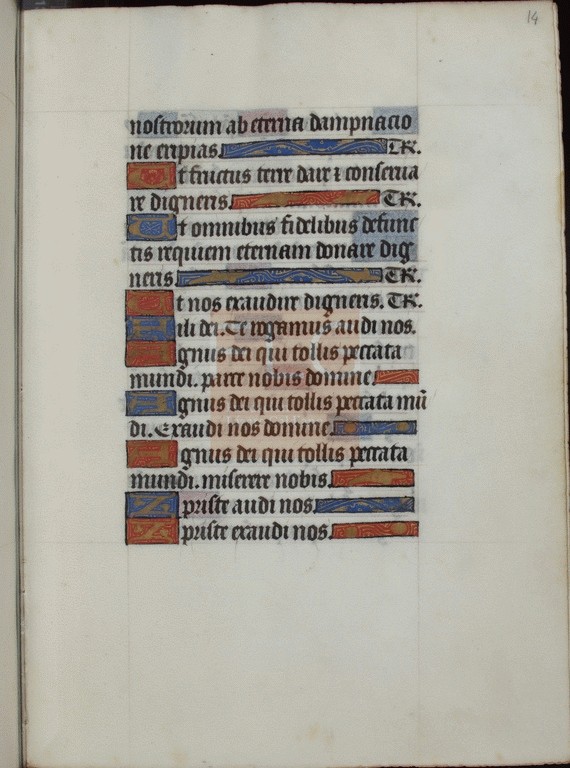 14
nostrorum ab eterna dampnacio
ne eripias. TR.
Ut fructus terre dare ⁊ conserua
re digneris. TR.
Ut omnibus fidelibus defunc
tis requiem eternam donare dig
neris. TR.
Ut nos exaudire digneris. TR.
Fili dei. Te rogamus audi nos.
Agnus dei qui tollis peccata
mundi. parce nobis domine.
Agnus dei qui tollis peccata mū
di. Exaudi nos domine.
Agnus dei qui tollis peccata
mundi. miserere nobis.
Xpriste audi nos.
Xpriste exaudi nos.